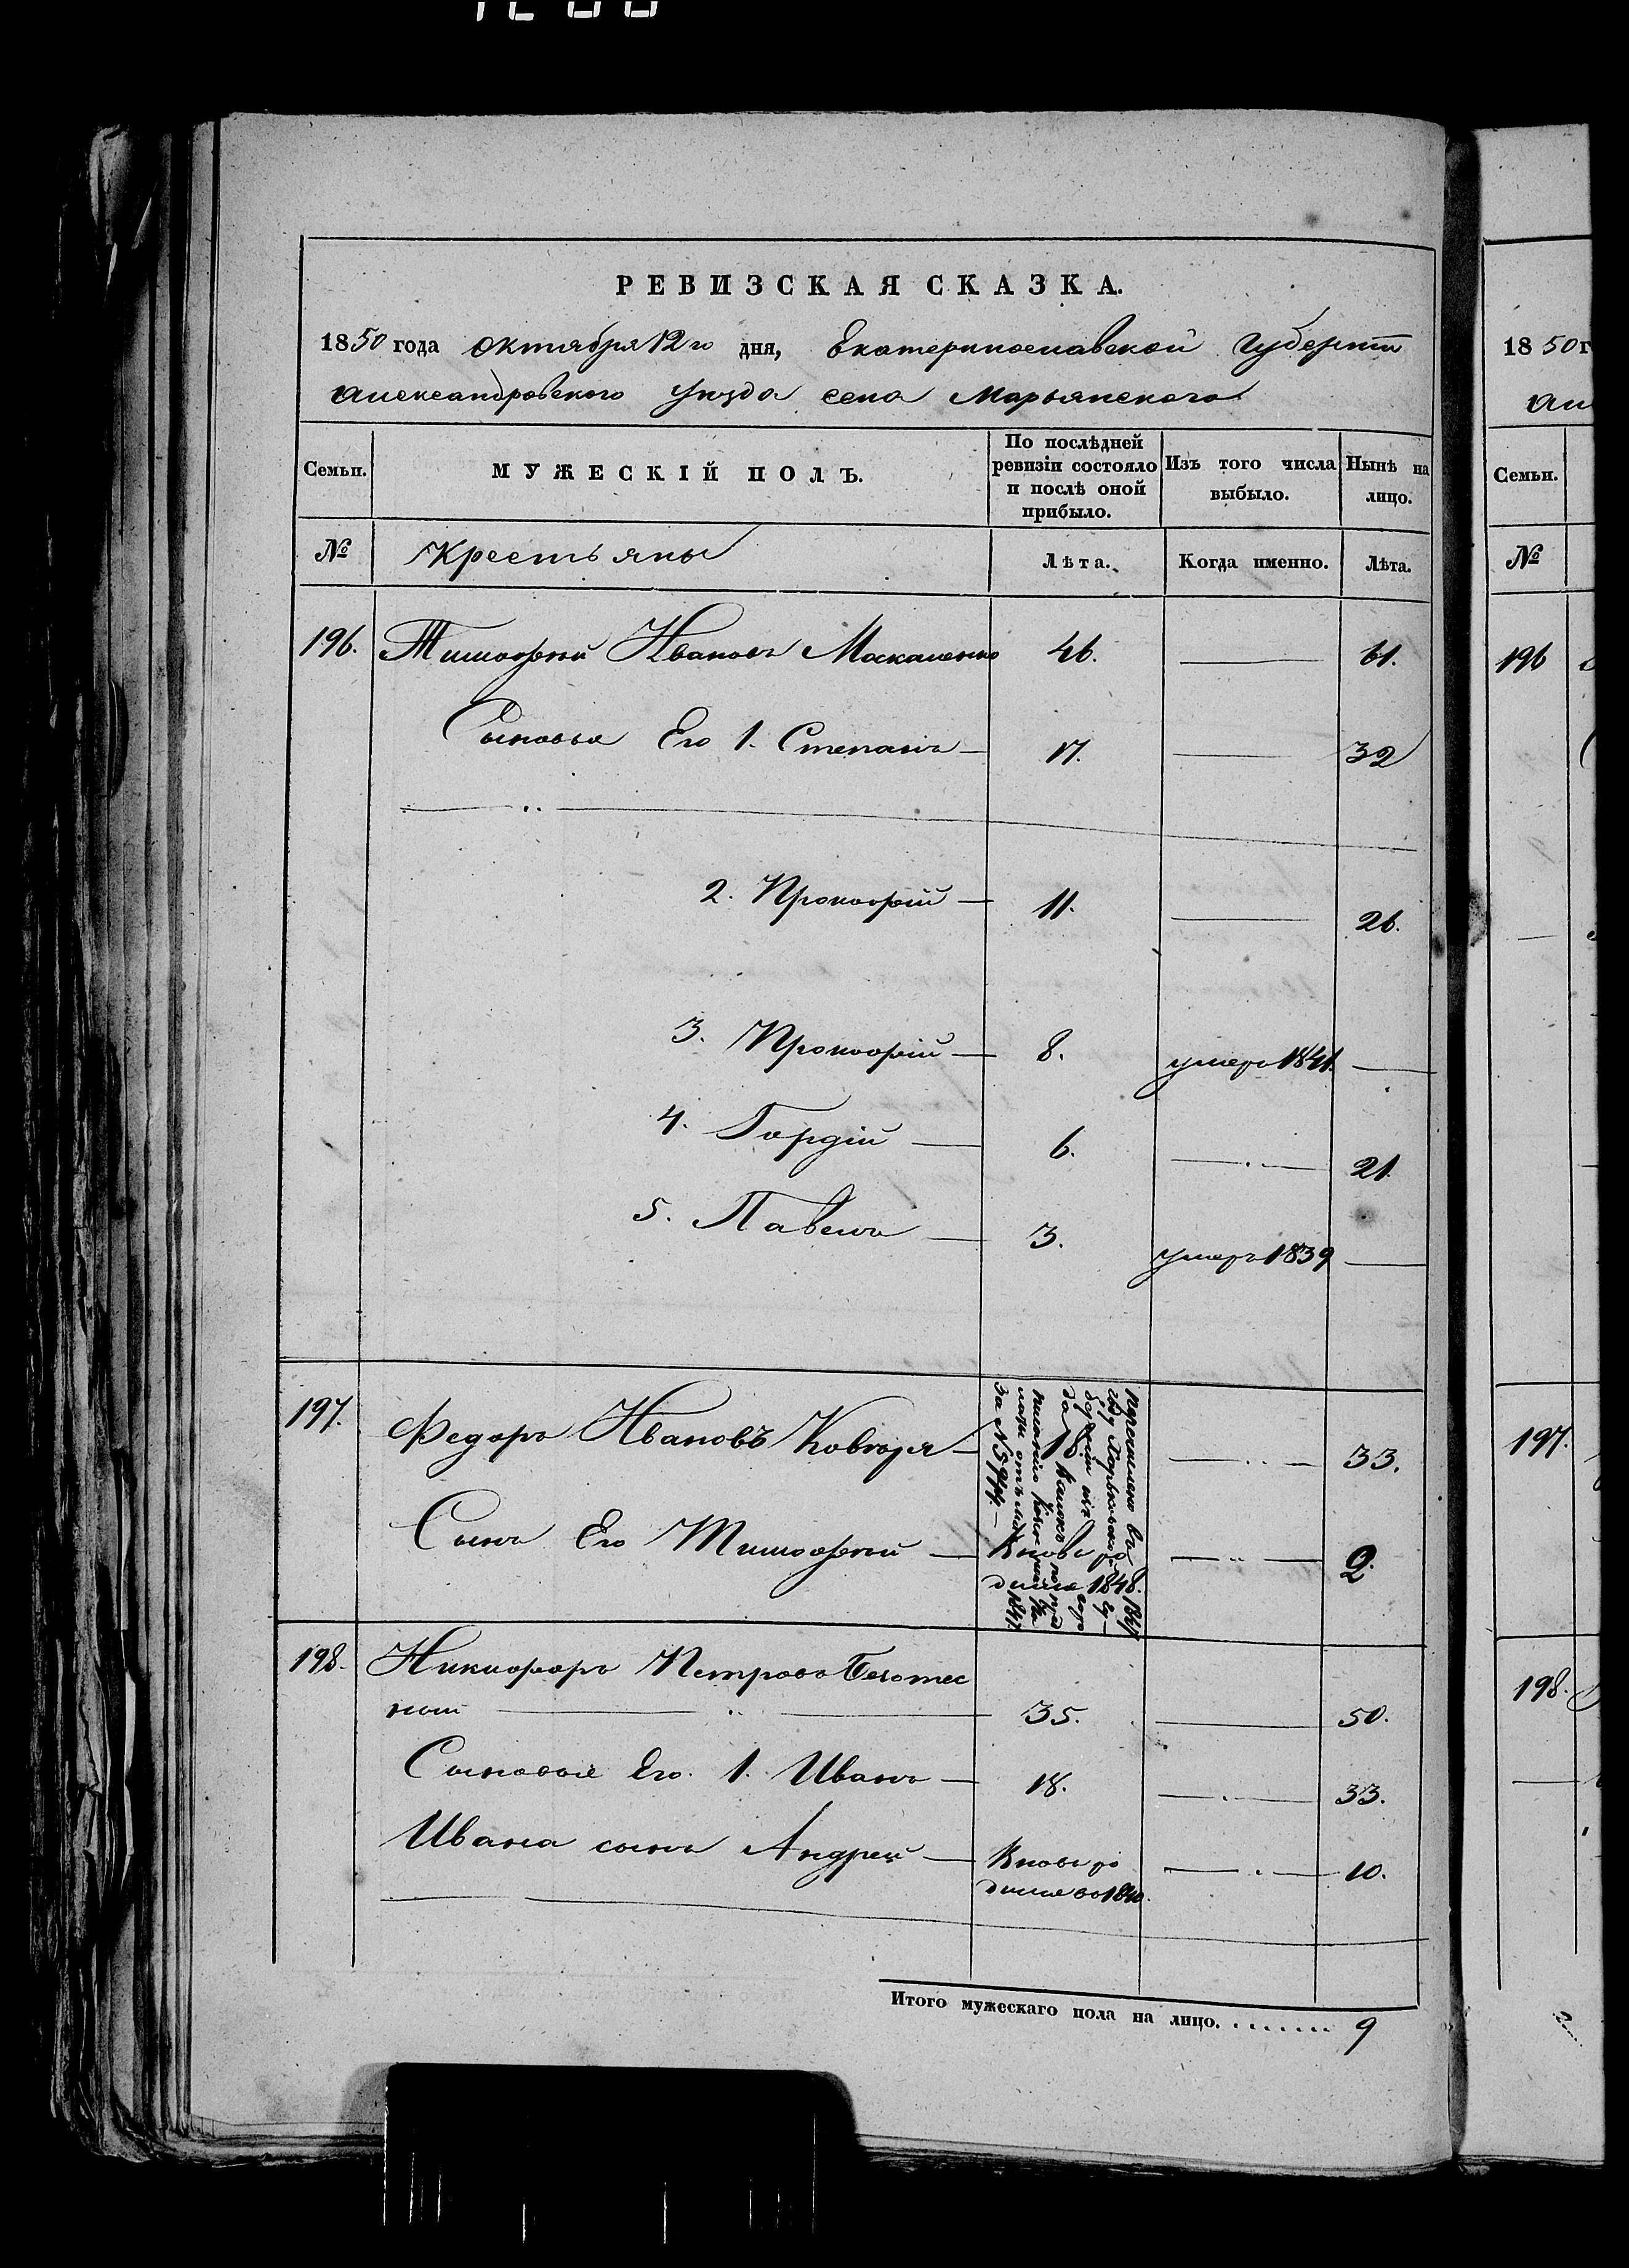 РЕВИЗСКАЯ СКАЗКА.
1850 года Октября 12го дня, Екатеринославской Губерніи
Александровского Уезда села Марьянского
Семьи. МУЖЕСКІЙ ПОЛЪ. По послѣдней ревизіи состояло и послѣ оной прибыло. Изъ того числа выбыло. Нынѣ на лицо.
№ Крестьяны Лѣта. Когда именно. Лѣта.
196. Тимофей Ивановъ Маскаленко 46. — 61.
Сыновья Его 1. Степанъ — 17. — 32
2. Прокофій — 11. — 26.
3. Прокофій — 8. умеръ 1841. —
4. Гордій — 6. — 21.
5. Павелъ — 3. умеръ 1839 —
197. Федоръ Ивановъ Ковтуря — — 33.
за № 5944.—
Сынъ Его Тимофей — Вновь ро
дился 1848. — 2.
198. Никифоръ Петровъ Безотес
ной — 35. — 50.
Сыновья Его. 1. Иванъ — 18. — 33.
Ивана сынъ Андрей — Вновь ро
дился въ 1840. — 10.
Итого мужескаго пола на лицо. . . . . . . . 9
18 50 г
Ал
Семьи.
№
196
197.
198.